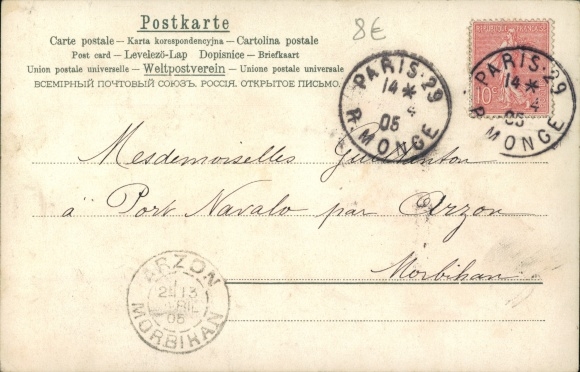 Postkarte
8€
Carte postale — Karta korespondencyjna — Cartolina postale
Post card — Levelező-Lap Dopisnice — Briefkaart
Union postale universelle — Weltpostverein — Unione postale universale
ВСЕМІРНЫЙ ПОЧТОВЫЙ СОЮЗЪ. РОССІЯ. ОТКРЫТОЕ ПИСЬМО.
PARIS·29
14 *
4
05
R. MONGE
10c
PARIS·29
14 *
4
05
R. MONGE
Mesdemoiselles
à Port Navalo par Arzon
Morbihan
ARZON
05
MORBIHAN